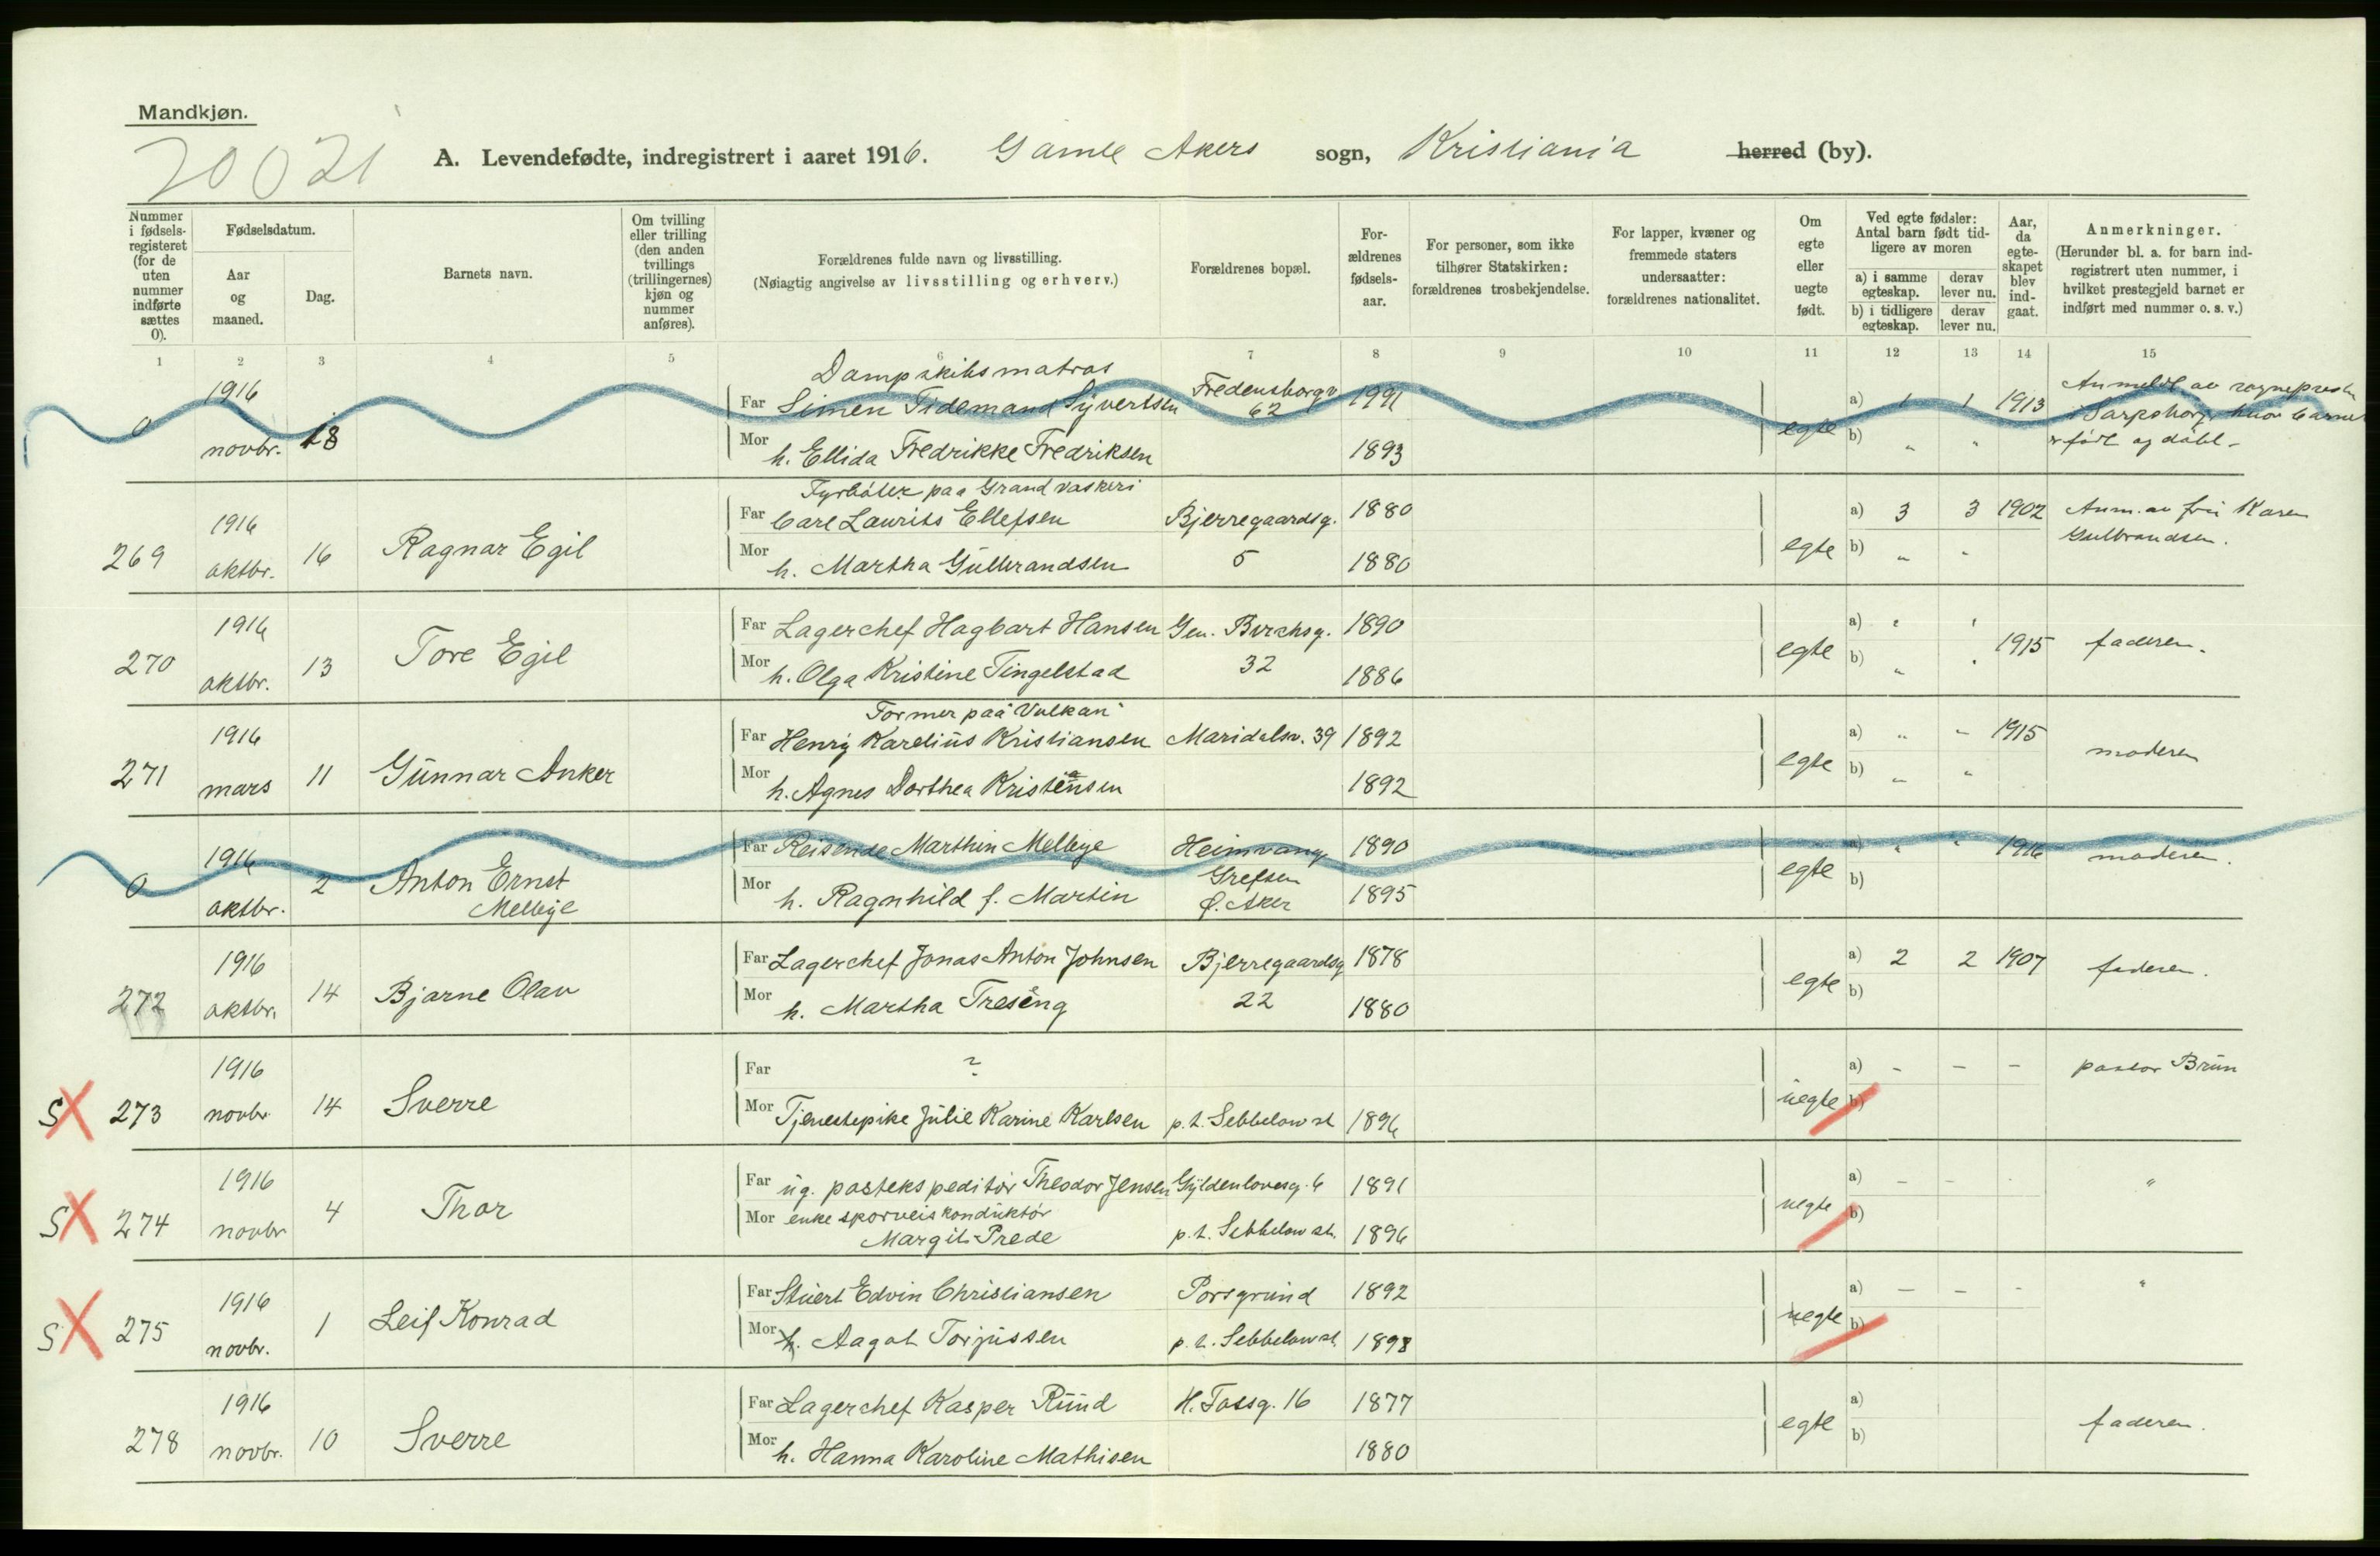 Mandkjøn.
20021
A. Levendefødte, indregistrert i aaret 1916. Gamle Akers sogn, Kristiania herred (by).
Nummer i fødsels-registeret (for de uten nummer indførte sættes 0).
Fødselsdatum.
Aar og maaned.
Dag.
Barnets navn.
Om tvilling eller trilling (den anden tvillings (trillingernes) kjøn og nummer anføres).
Forældrenes fulde navn og livsstilling.
(Nøiagtig angivelse av livsstilling og erhverv.)
Forældrenes bopæl.
For-ældrenes fødsels-aar.
For personer, som ikke tilhører Statskirken: forældrenes trosbekjendelse.
For lapper, kvæner og fremmede staters undersaatter: forældrenes nationalitet.
Om egte eller uegte født.
Ved egte fødsler: Antal barn født tid-ligere av moren
a) i samme egteskap.
derav lever nu.
b) i tidligere egteskap.
derav lever nu.
Aar, da egte-skapet blev ind-gaat.
Anmerkninger.
(Herunder bl. a. for barn ind-registrert uten nummer, i hvilket prestegjeld barnet er indført med nummer o. s. v.)
1 2 3 4 5 6 7 8 9 10 11 12 13 14 15
Dampskibsmatros
0 1916 novbr. 18 Far Simen Tidemand Syvertsen Fredensborgv 62 1991 egte a) 1 1 1913 Anmeldt av sognepresten
i Sarpsborg, hvor barnet
er født og døbt.
Mor h. Ellida Fredrikke Fredriksen 1893 b) " "
Fyrbøter paa Grand vaskeri
269 1916 oktbr. 16 Ragnar Egil Far Carl Laurits Ellefsen Bjerregaardsg. 1880 egte a) 3 3 1902 Anm. av fru Karen
Gulbrandsen.
Mor h. Martha Gulbrandsen 5 1880 b) " "
270 1916 oktbr. 13 Tore Egil Far Lagerchef Hagbart Hansen Gen. Birchsg. 1890 egte a) " " 1915 faderen.
Mor h. Olga Kristine Tingelstad 32 1886 b) " "
Former paa "Vulkan"
271 1916 mars 11 Gunnar Anker Far Henry Karelius Kristiansen Maridalsv. 39 1892 egte a) " " 1915 moderen
Mor h. Agnes Dorthea Kristiansen 1892 b) " "
0 1916 oktbr. 2 Anton Ernst Melbye Far Reisende Marthin Melbye Heimvang 1890 egte a) " " 1916 moderen.
Grefsen
Mor h. Ragnhild f. Martin Ø. Aker 1895 b)
272 1916 oktbr. 14 Bjarne Olav Far Lagerchef Jonas Anton Johnsen Bjerregaardsg 1878 egte a) 2 2 1907 faderen.
Mor h. Martha Treseng 22 1880 b)
S X 273 1916 novbr. 14 Sverre Far ? uegte a) - - - pastor Brun
Mor Tjenestepike Julie Karine Karlsen p.t. Sebbelow st 1896 b)
S X 274 1916 novbr 4 Thor Far ug. postekspeditør Theodor Jensen Gyldenlovesg. 6 1891 uegte a) - - - "
Mor enke sporveiskonduktør
Margit Prede p.t. Sebbelow st. 1896 b)
S X 275 1916 novbr. 1 Leif Konrad Far Stuert Edvin Christiansen Porsgrund 1892 uegte a) - - - "
Mor h. Aagot Torjussen p.t. Sebbelow st. 1898 b)
278 1916 novbr. 10 Sverre Far Lagerchef Kasper Ruud H. Tossg. 16 1877 egte a) faderen.
Mor h. Hanna Karoline Mathisen 1880 b)